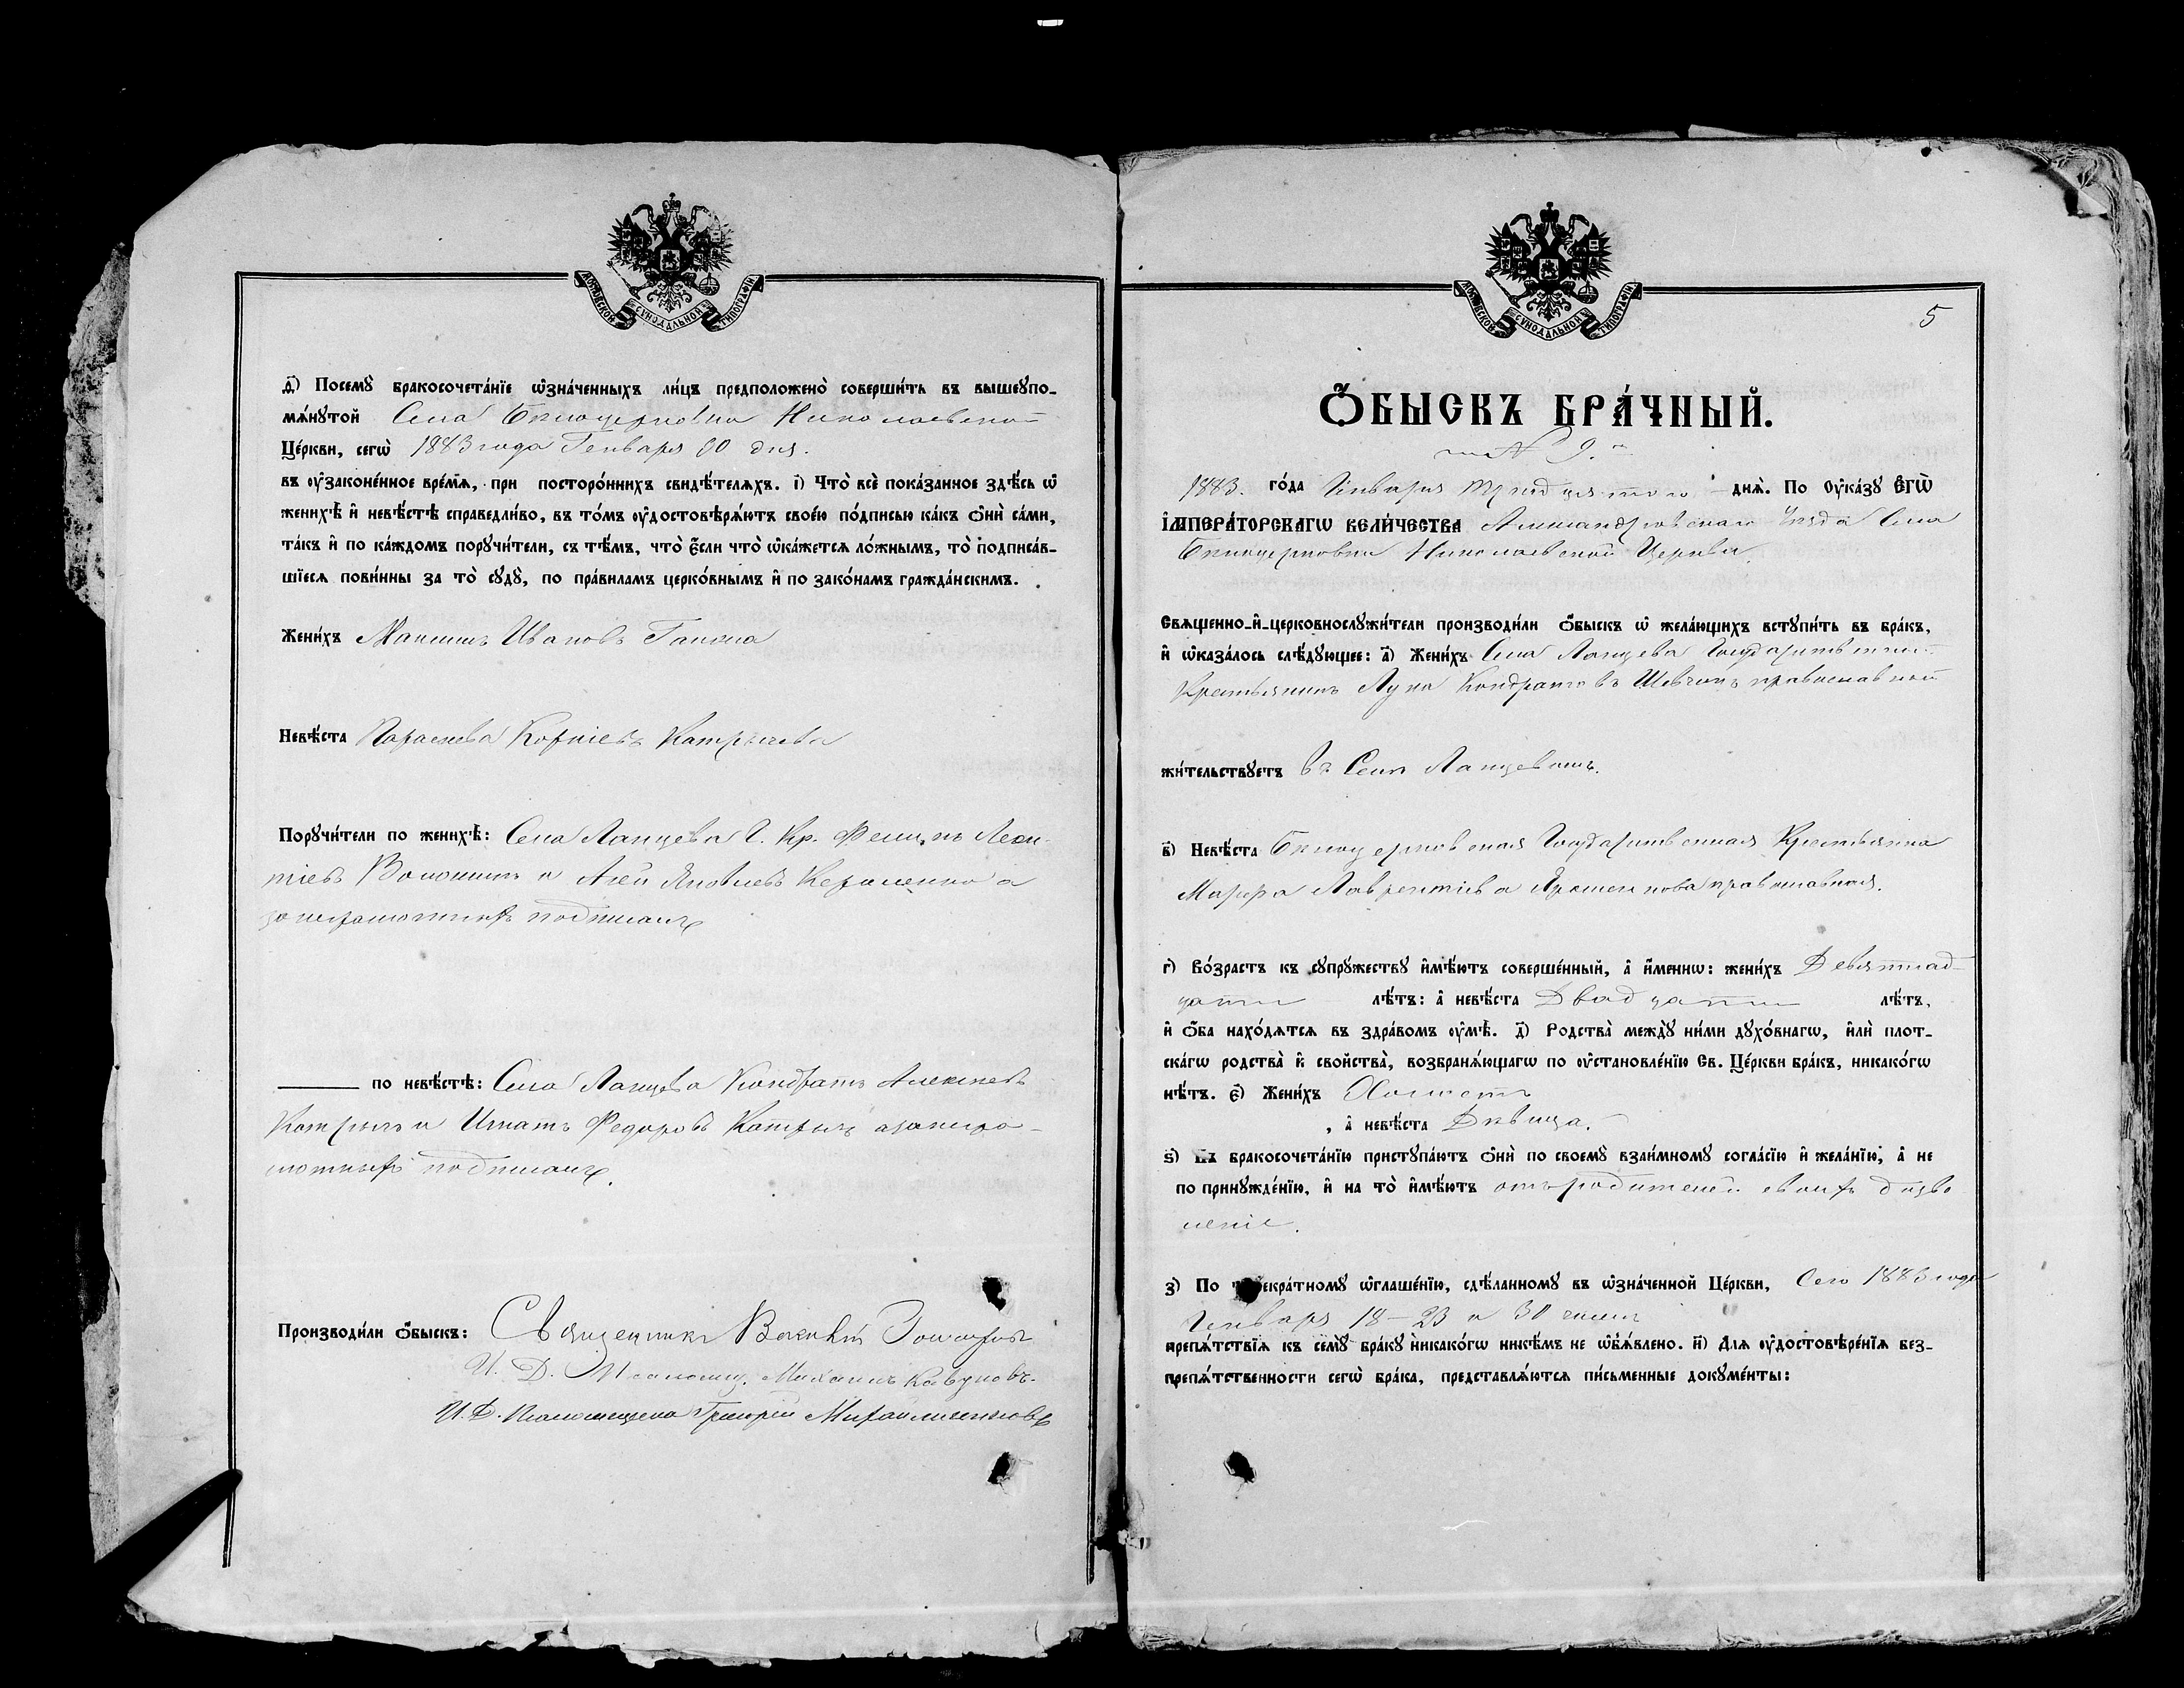 МОСКОВСКОЙ СѴНОДАЛЬНОЙ ТИПОГРАФІИ
д҃) Посемꙋ̀ бракосочета́нїе ѡ҆зна́ченныхъ ли́цъ предположено̀ соверши́ть въ вышеꙋпо-
мѧ́нꙋтой Села Бѣлоцерковки Николаевской
Це́ркви, сегѡ̀ 1883 года Генваря 30 дня.
въ ᲂу҆законе́нное вре́мѧ, при посторо́ннихъ свидѣ́телѧхъ. і҃) Что̀ всѐ пока́занное здѣ́сь ѡ҆
женихѣ̀ и҆ невѣ́стѣ справедли́во, въ то́мъ ᲂу҆достовѣрѧ́ютъ свое́ю по́дписью ка́къ ѻ҆нѝ са́ми,
та́къ и҆ по ка́ждомъ порꙋчи́тели, съ тѣ́мъ, что̀ є҆́сли что̀ ѡ҆ка́жетсѧ ло́жнымъ, то̀ подписа́в-
шїесѧ пови́нны за то̀ сꙋдꙋ̀, по пра́виламъ церко́внымъ и҆ по зако́намъ гражда́нскимъ.
Жени́хъ Максимъ Ивановъ
Невѣ́ста Параскева Корніева
Порꙋчи́тели по женихѣ̀: Села Ланцева Г. Кр. Леон-
тіевъ и Яковлевъ а
за неграмотныхъ подписалъ
по невѣ́стѣ: Села Ланцева Кондратъ Алексѣевъ
Катричъ и Игнатъ Федоровъ Катричъ а за негра-
мотныхъ подписалъ.
Производи́ли ѻ҆́быскъ: Священникъ
И. Д. Псаломщ. Михаилъ
И. Д. Псаломщика Григорій
МОСКОВСКОЙ СѴНОДАЛЬНОЙ ТИПОГРАФІИ
5
Ѻ҆́БЫСКЪ БРА́ЧНЫЙ.
№ 9.
1883. го́да Генваря тридцятого днѧ̀. По ᲂу҆ка́зꙋ Є҆ГѠ̀
І҆МПЕРА́ТОРСКАГѠ ВЕЛИ́ЧЕСТВА Александровскаго Уѣзда Села
Бѣлоцерковки Николаевской Церкви.
Свѧщенно-и҆-церковнослꙋжи́тели производи́ли ѻ҆́быскъ ѡ҆ жела́ющихъ встꙋпи́ть въ бра́къ,
и҆ ѡ҆каза́лось слѣ́дꙋющее: а҃) Жени́хъ Села Ланцева Государственный
Крестьянинъ Лука Кондратовъ Шевченъ православной
жи́тельствꙋетъ въ Селѣ Ланцевомъ.
в҃) Невѣ́ста Бѣлоцерковская Государственная Крестьянка
Марфа Лаврентіева православная.
г҃) Во́зрастъ къ сꙋпрꙋжествꙋ и҆мѣ́ютъ соверше́нный, а҆ и҆́меннѡ: жени́хъ Девятнад-
цати лѣ́тъ: а҆ невѣ́ста Двадцати лѣ́тъ,
и҆ ѻ҆́ба нахо́дѧтсѧ въ здра́вомъ ᲂу҆мѣ̀. д҃) Родства̀ междꙋ̀ ни́ми дꙋхо́внагѡ, и҆лѝ плот-
ска́гѡ родства̀ и҆ свойства̀, возбранѧ́ющагѡ по ᲂу҆становле́нїю Св. Це́ркви бра́къ, никако́гѡ
нѣ́тъ. є҃) Жени́хъ Холостъ
, а҆ невѣ́ста Дѣвица.
ѕ҃) Къ бракосочета́нїю пристꙋпа́ютъ ѻ҆нѝ по своемꙋ̀ взаи́мномꙋ согла́сїю и҆ жела́нїю, а҆ не
по принꙋжде́нїю, и҆ на то̀ и҆мѣ́ютъ отъ родителей своихъ дозво
леніе.
з҃) По троекра́тномꙋ ѡ҆глаше́нїю, сдѣ́ланномꙋ въ ѡ҆зна́ченной Це́ркви, Сего 1883 года
Генваря 18 – 23 и 30 чиселъ
препѧ́тствїѧ къ семꙋ̀ бра́кꙋ никако́гѡ никѣ́мъ не ѡ҆б̾ѧ́влено. и҃) Для ᲂу҆достовѣре́нїѧ без-
препѧ́тственности сегѡ̀ бра́ка, представлѧ́ютсѧ пи́сьменные докꙋме́нты: